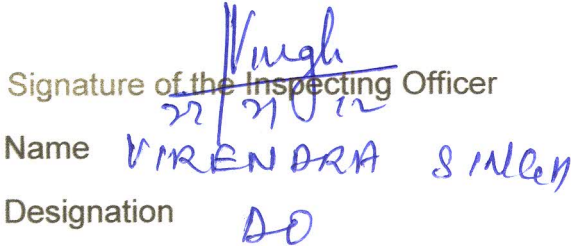 Vingh
Signature of the Inspecting Officer
Name VIRENDRA SINGH
Designation DO